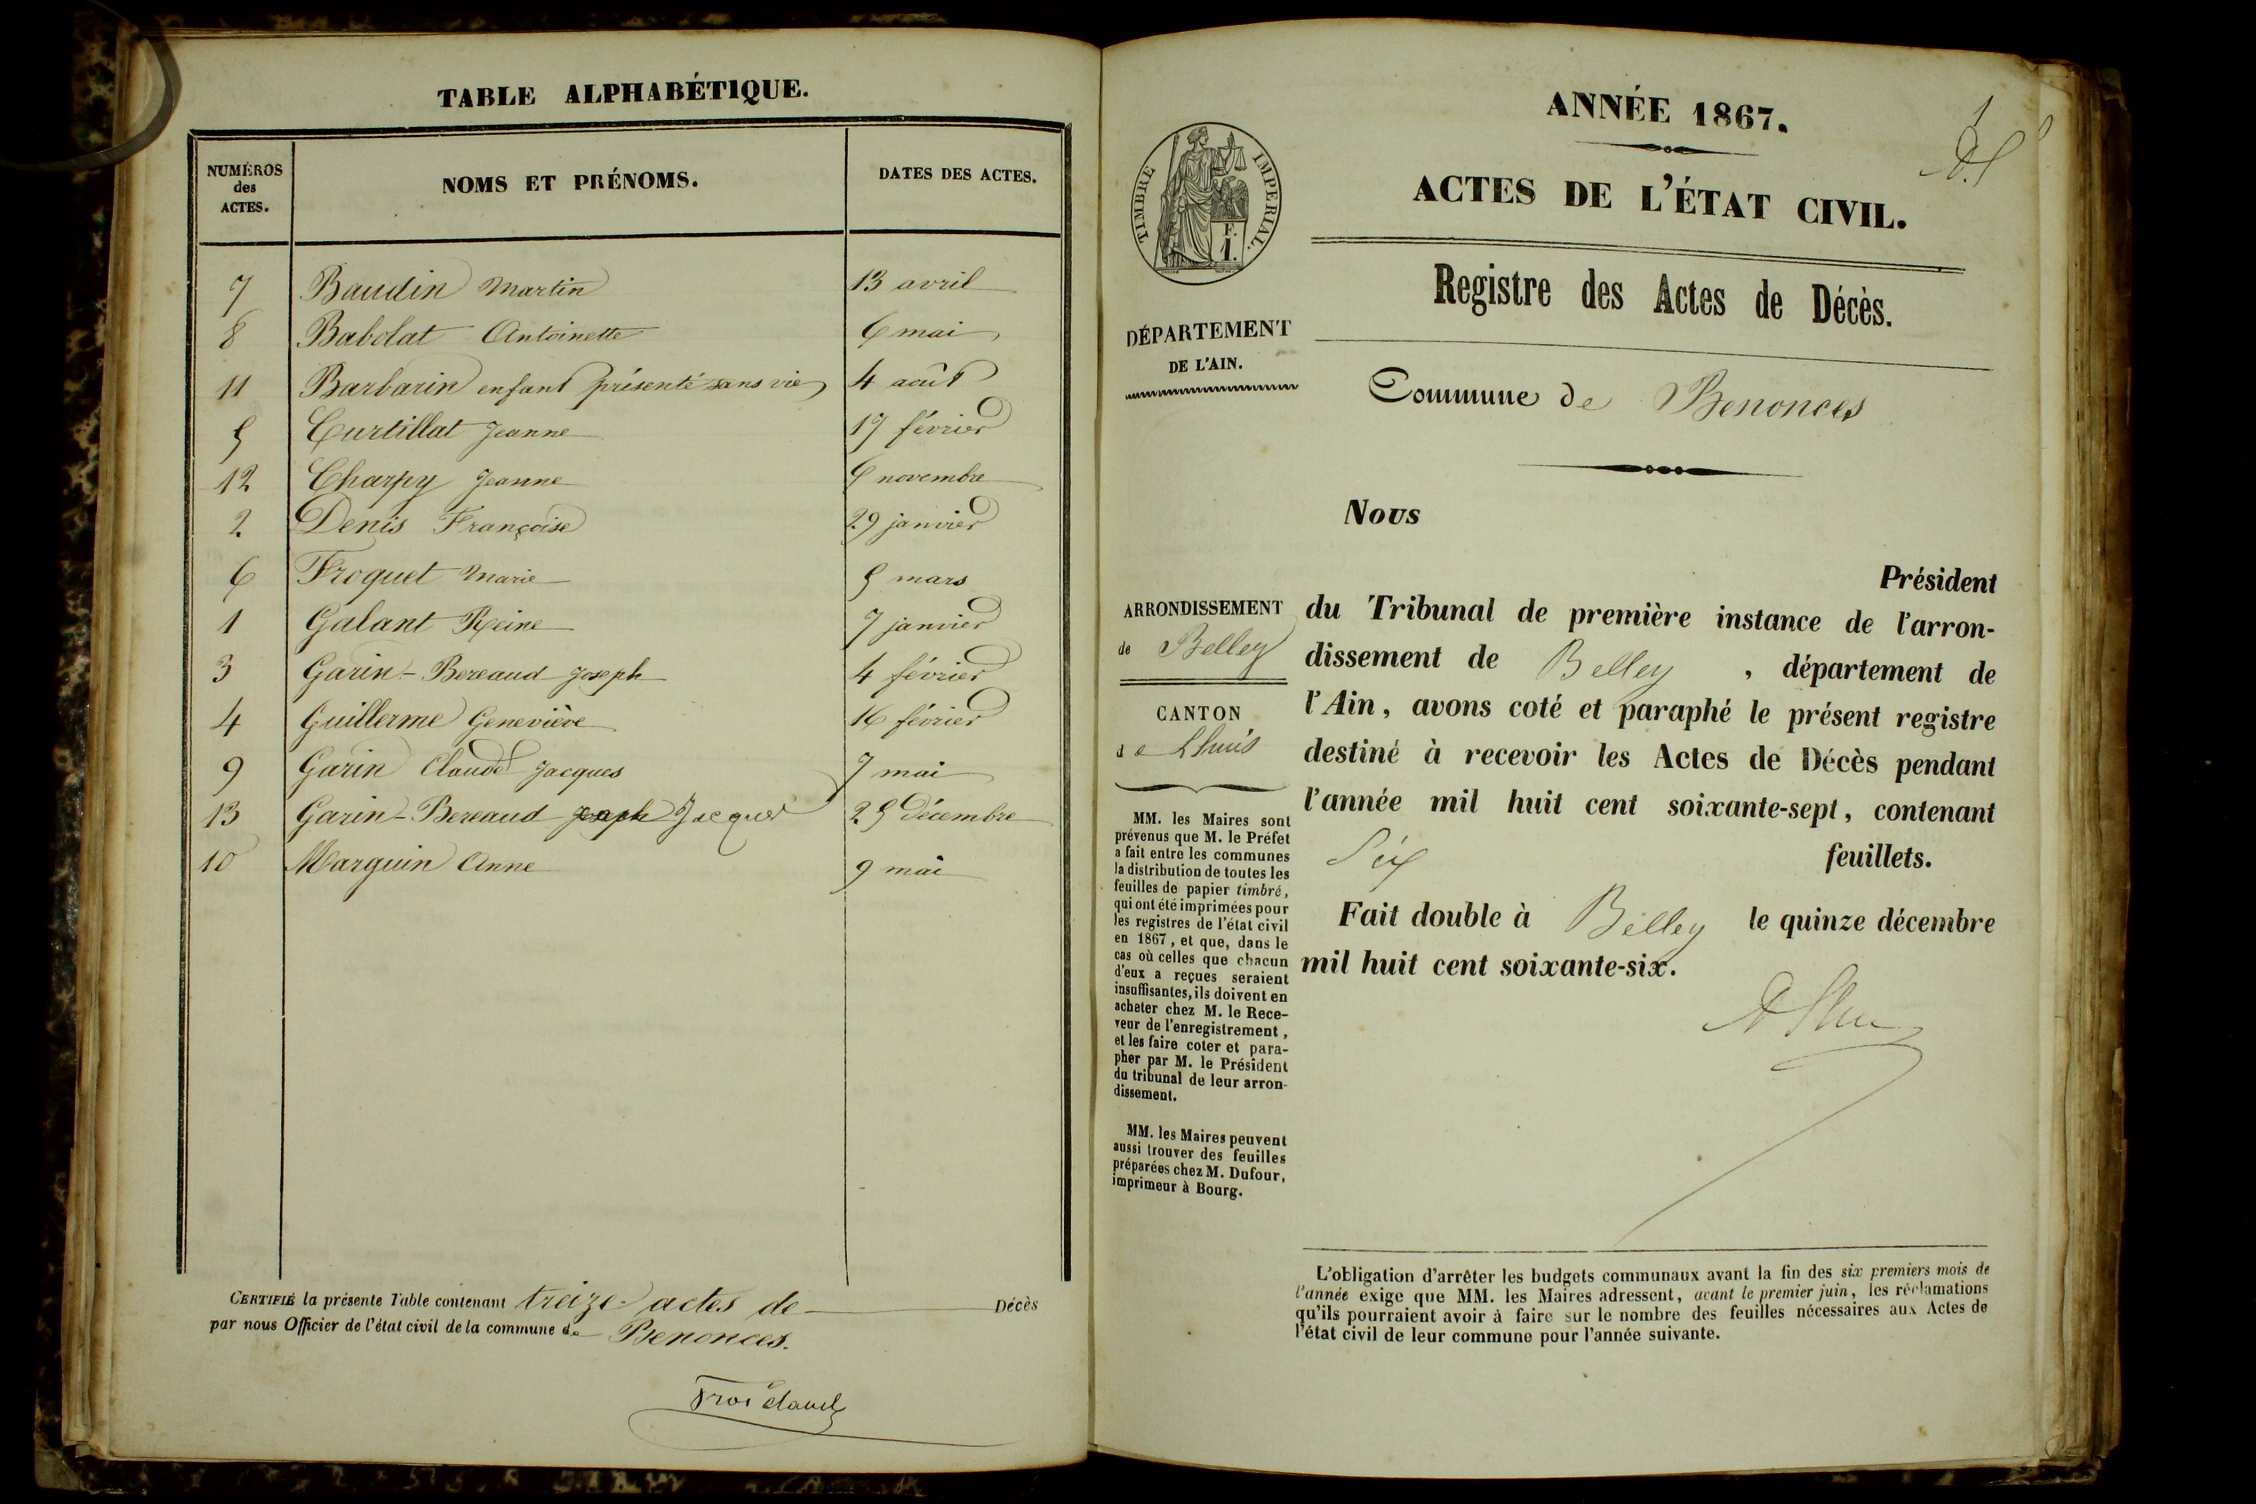 TABLE ALPHABÉTIQUE.
NUMÉROS des ACTES.
NOMS ET PRÉNOMS.
DATES DES ACTES.
7 Baudin Martin 13 avril
8 Babolat Antoinette 6 mai
11 Barbarin enfant présenté sans vie 4 août
5 Curtillat Jeanne 17 février
12 Charpy Jeanne 6 novembre
2 Denis Françoise 29 janvier
6 Froquet Marie 5 mars
1 Galant Reine 7 janvier
3 Garin-Bereaud Joseph 4 février
4 Guillerme Geneviève 16 février
9 Garin Claude Jacques 7 mai
13 Garin-Bereaud Joseph Jacques 25 Décembre
10 Marguin Anne 9 mai
CERTIFIÉ la présente Table contenant treize actes de Décès
par nous Officier de l'état civil de la commune de Benonces.
ANNÉE 1867.
1
ACTES DE L'ÉTAT CIVIL.
TIMBRE IMPÉRIAL.
F.
1.
Registre des Actes de Décès.
DÉPARTEMENT
DE L'AIN.
Commune de Benonces
Nous
Président
ARRONDISSEMENT
de Belley
CANTON
de Lhuis
du Tribunal de première instance de l'arron-
dissement de Belley, département de
l'Ain, avons coté et paraphé le présent registre
destiné à recevoir les Actes de Décès pendant
l'année mil huit cent soixante-sept, contenant
Six feuillets.
Fait double à Belley le quinze décembre
mil huit cent soixante-six.
MM. les Maires sont
prévenus que M. le Préfet
a fait entre les communes
la distribution de toutes les
feuilles de papier timbré,
qui ont été imprimées pour
les registres de l'état civil
en 1867, et que, dans le
cas où celles que chacun
d'eux a reçues seraient
insuffisantes, ils doivent en
acheter chez M. le Rece-
veur de l'enregistrement,
et les faire coter et para-
pher par M. le Président
du tribunal de leur arron-
dissement.
MM. les Maires peuvent
aussi trouver des feuilles
préparées chez M. Dufour,
imprimeur à Bourg.
L'obligation d'arrêter les budgets communaux avant la fin des six premiers mois de
l'année exige que MM. les Maires adressent, avant le premier juin, les réclamations
qu'ils pourraient avoir à faire sur le nombre des feuilles nécessaires aux Actes de
l'état civil de leur commune pour l'année suivante.